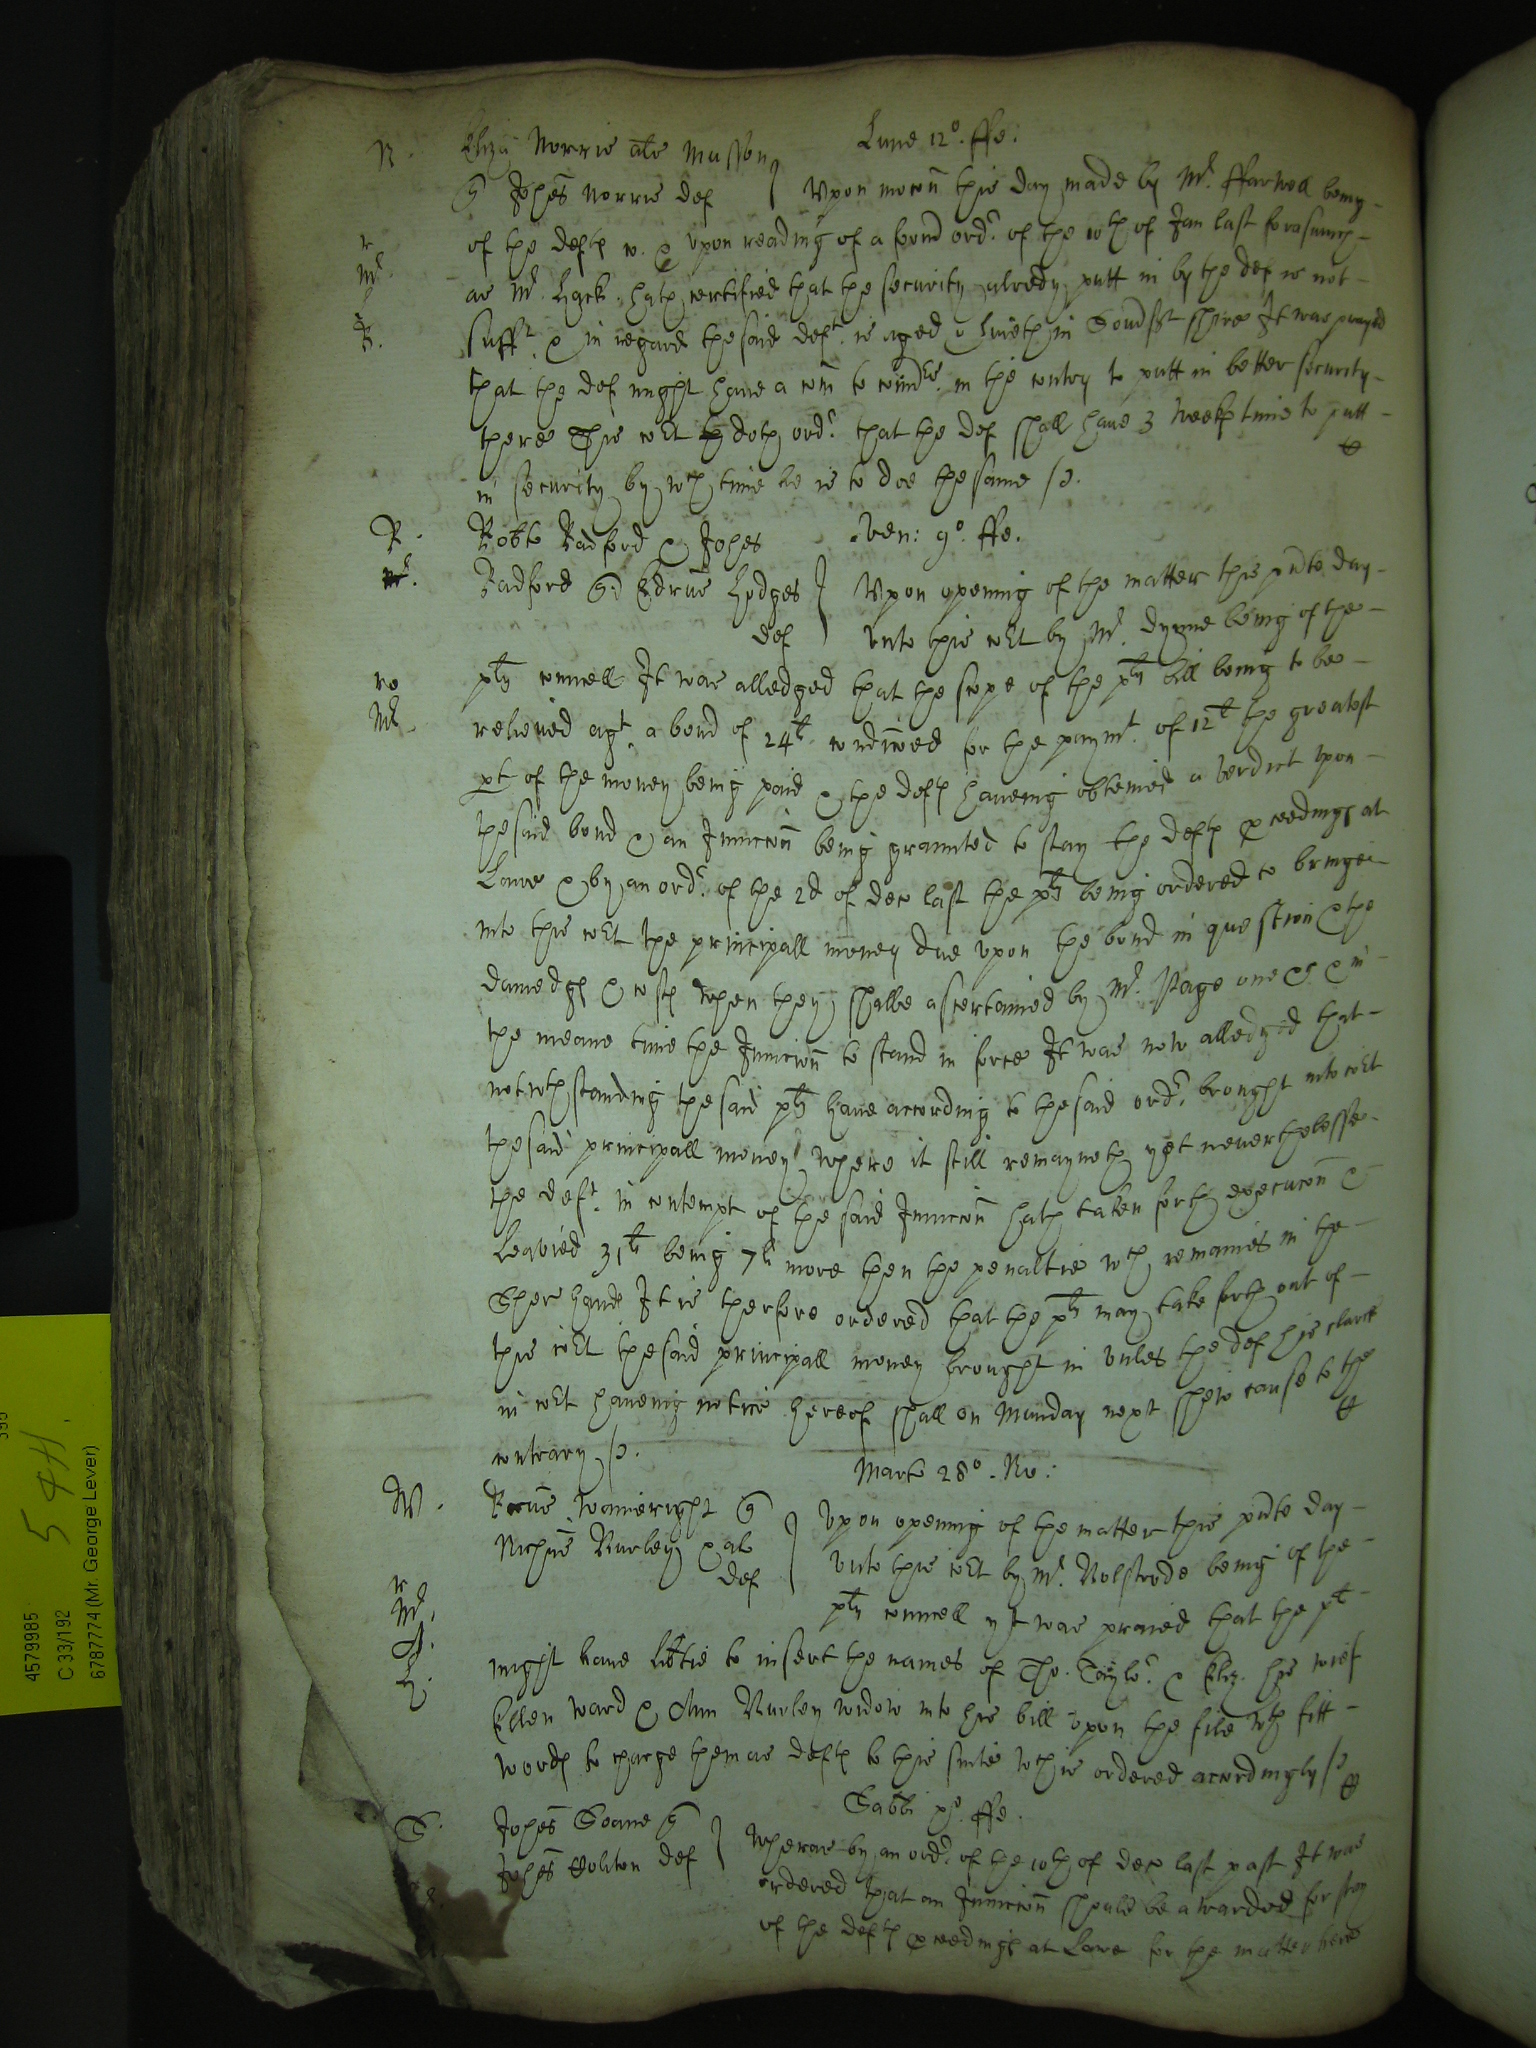 N. Eliza Norris als Musson Lune 12o. ffe:
q Johes Norris def Upon mocon this day made by Mr. ffarwell being
of the defts c. & upon reading of a form̃ ordr. of the 10th of Jan last forasmuch
r
Mr. as Mr. Hack. hath certified that the security alredy putt in by the def is not
B. sufft. & in regard the said deft. is aged & liveth in shire It was prayed
that the def might have a com to comdrs. in the contry to putt in better security
there This cort doth ordr. that the def shall have 3 weeks time to putt
in security by wch time he is to doe the same /.
R. Robte Radford & Johes Ven: 9o. ffe.
Radford q. Edrus Hodges Upon opening of the matter this pñte day
def unto this cort by Mr. being of the
ro
Mr. plts councell It was alledged that the scope of the plts bill being to be
relieved agt. a bond of 24li condicoed for the paymt. of 12li the greatest
pt of the money being paid & the deft haveing obteined a verdict upon
the said bond & an Iniuccon being graunted to stay the defts pceedings at
Lawe & by an ordr. of the 2d of dec last the plts being ordered to bringe
into this cort the principall money due upon the bond in question & the
damedgs & costs when they shalbe ascertained by Mr. Page one &c & in
the meane time the Iniuccon to stand in force It was now alledged that
notwthstanding the said plts have according to the said ordr. brought into cort
the said principall money where it still remayneth yet neverthelesse
the deft. in contempt of the said Iniuccon hath taken forth execucon &
leavied 31li being 7li more then the penaltie wch remaines in the
Sher hands It is therfore ordered that the plts may take forth out of
this cort the said principall money brought in unles the def his clarke
in cort haveing notice hereof shall on Munday next shew cause to the
contrary /.
Marts 28o. No:
W. Wainwright q Upon opening of the matter this pñte day
Nichus Burley & al unto this cort by Mr. Bolstrode being of the
def
r
Mr. plts councell yt was praied that the plt
J.
H. might have libtie to insert the names of Tho. Taylor. & Eliz. his wief
Ellen Ward & Ann Burley widow into his bill upon the file wth fitt
words to charge them as defts to this suite wch is ordered accordingly /.
Sabbi xo. ffe.
S. Johes Soane q Wheras by an ordr. of the 10th of dec last past It was
Johes def ordered that an Iniuccon should be awarded for stay
of the defts pceedings at Lawe for the matter here
4579985
C 33/192
6787774 (Mr. George Lever)